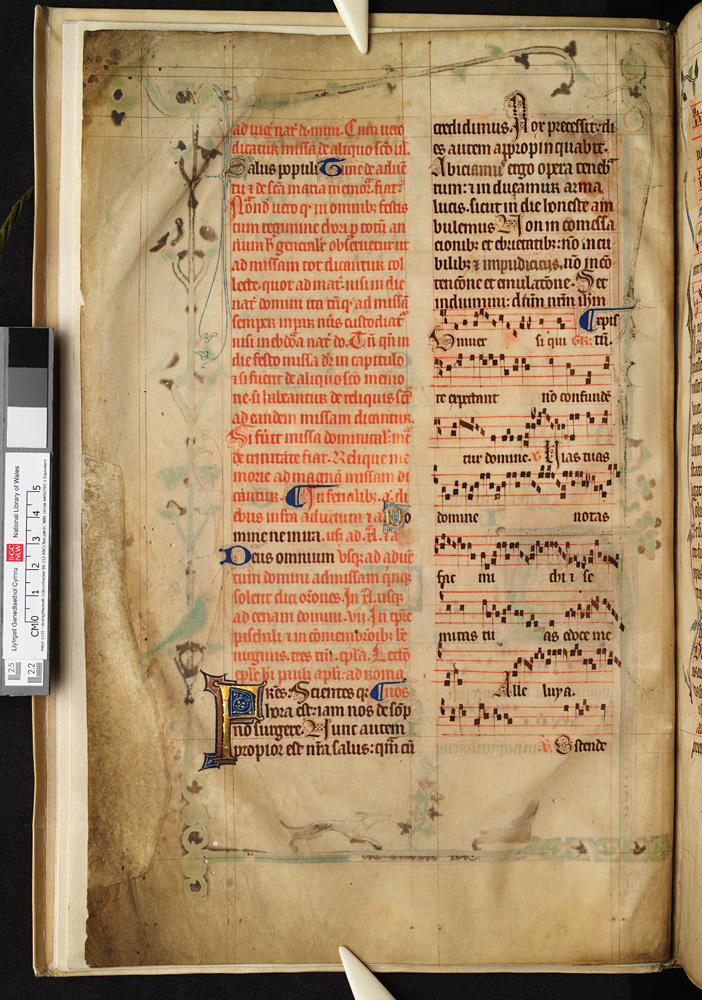 ad uig' nat' domini. Cum uero
dicatur missa de aliquo sc̄o ul'.
Salus populi Tunc de aduē
tu ⁊ de sc̄a maria memor' fiat.
Nōnd' uero q' in omnib' festis
cum regimine chori p totū an
num h' generale obseruetur ut
ad missam tot dicantur col
lecte quot ad mat' nisi in die
nat' domini ita tn̄ q' ad missā
semper inpar nūs custodiat'
nisi in ebd'a nat' do. Tn̄ qn̄ in
die festo missa dr̄ in capitulo
⁊ si fuerit de aliquo sc̄o memo
ne si habeantur de reliquis sc̄is
ad eandem missam dicantur.
Si fu'it missa dominical'
de trinitate fiat. Relique me
morie ad magnā missam di
cantur. In ferialib' a' di
ebus infra aduentum ⁊ a Do
mine ne mira. usq' ad
Deus omnium usq' ad aduē
tum domini ad missam quīq'
solent dici or̄ones. In usq'
ad cenam domini. vij. In tp̄re
paschali ⁊ in cōmemor̄oib' bē
uirginis. tres tn̄.
ad roma
Fr̄es. Scientes q' nos
hora est iam nos de sōp
no surgere. Nunc autem
propior est nr̄a salus: qm̄ cū
credidimus. Nox precessit: di
es autem appropinquabit.
Abiciam' ergo opera teneb'
rum: ⁊ induamur arma
lucis. sicut in die honeste am
bulemus Non in comessa
cionib' et ebrietatib': nō in cu
bilib' ⁊ impudiciciis, nō in cō
tencōne et emulacōne. Set
induimini: dn̄m nr̄m ihm̄
Cr̄pist'
Uniuer si qui GR. tū.
te expectant nō confunde
tur domine. V Uias tuas
domine notas
fac mi chi ⁊ se
mitas tu as edoce me
Alle luya.
V. Ostende
Llyfrgell Genedlaethol Cymru
National Library of Wales
LLGC
NLW
CM 0 1 2 3 4 5
2.5
2.2